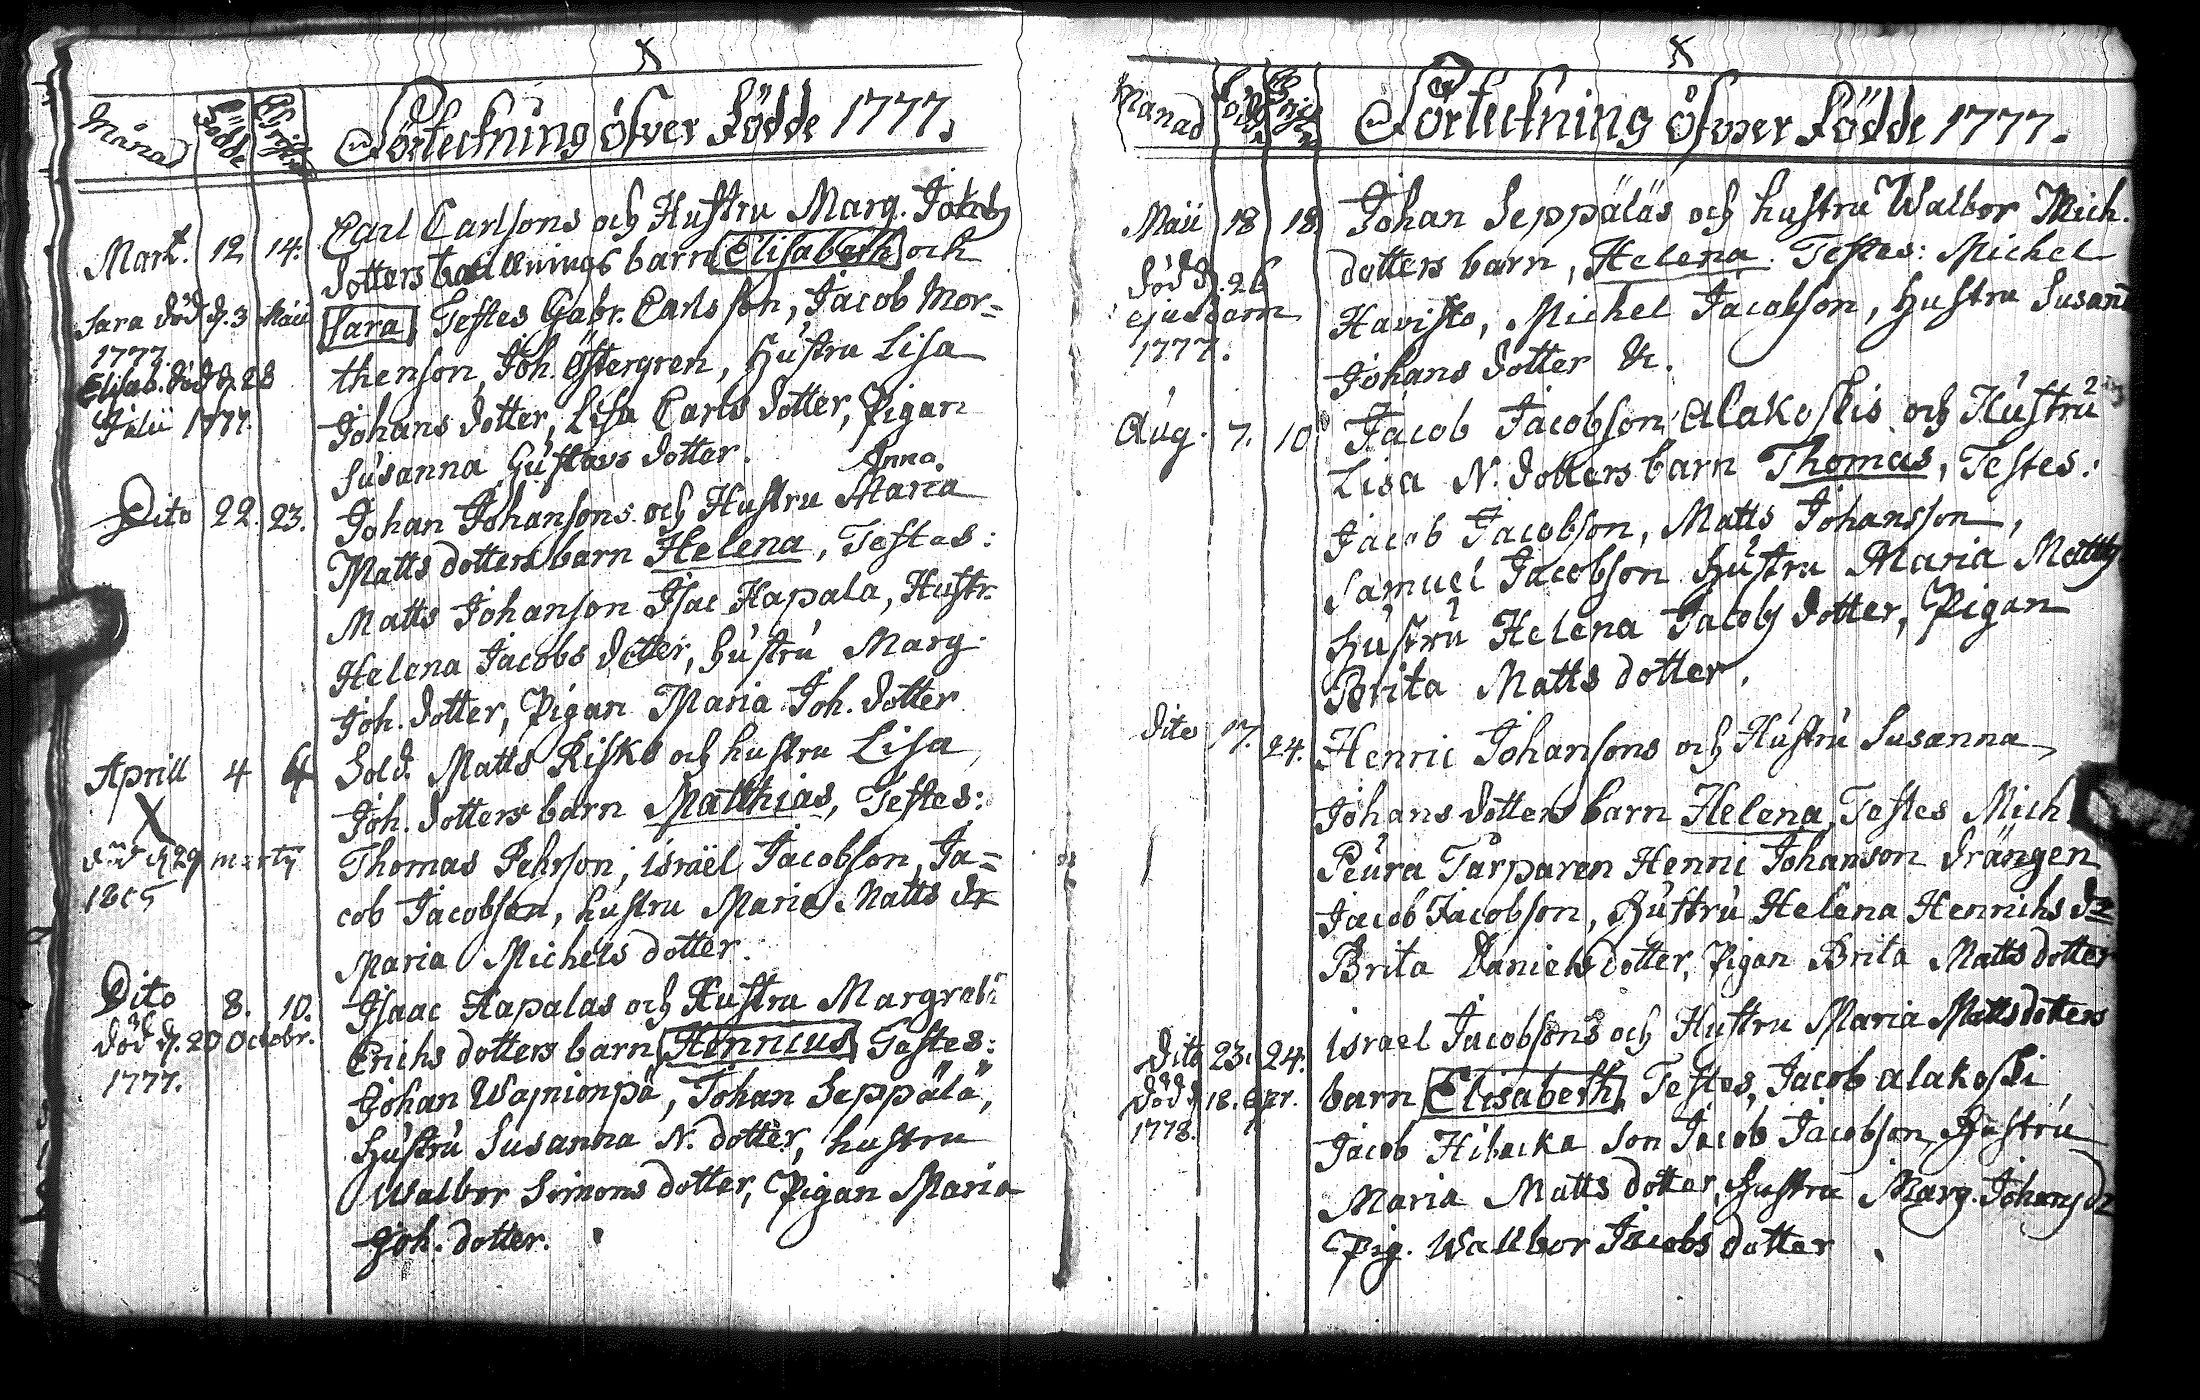 X
Månad Födde Christn. Förteckning öfver Födde 1777.
Carl Carlsons och Hustru Marg. Jacobs
Mart. 12 14. dotters tvillnings barn Elisabeth och
Sara död d. 3 Maii Sara, Testes Gabr. Carlsson, Jacob Mor-
1777. thenson, Joh. Östergren, Hustru Lisa
Elisab. död d. 28 Johans dotter, Lisa Carls dotter, Pigan
Julii 1777. Susanna Gustavs dotter. Anna
Dito 22. 23. Johan Johansons och Hustru Maria
Matts dotters barn Helena, Testes:
Matts Johanson Isac Hapala, Hustr.
Helena Jacobs dotter, hustru Marg.
Joh. dotter, Pigan Maria Joh. dotter
Aprill 4 4 Sold. Matts Risks och hustru Lisa
X Joh. dotters barn Matthias, Testes:
död d. 29 martii Thomas Pehrson, israël Jacobson, Ja-
1805 cob Jacobson, hustru Maria Matts dr
Maria Michels dotter.
Dito 8. 10. Isaac Hapalas och Hustru Margreta
död d. 20 Octobr. Erichs dotters barn Henricus Testes:
1777. Johan Wainionpä, Johan Seppälä,
hustru Susanna N. dotter, hustru
Walbor Simons dotter, Pigan Maria
Joh. dotter.
X
Månad Födde Förteckning öfver Födde 1777.
Maii 18 18 Johan Seppäläs och hustru Walbor Mich.
död d. 26 dotters barn, Helena. Testes: Michel
ejusdem Havisto, Michel Jacobson, hustru Susan
1777. Johans dotter &c.
Aug. 7. 10 Jacob Jacobson Alakoskis och Hustru
Lisa N. dotters barn Thomas, Testes:
Jacob Jacobson, Matts Johansson,
Samuel Jacobson hustru Maria Matts
hustru Helena Jacobs dotter, Pigan
Brita Matts dotter.
dito 17. 24. Henric Johansons och Hustru Susanna
Johans dotters barn Helena, Testes Mich
Peura Tårparen Henric Johanson drängen
Jacob Jacobson, Hustru Helena Henrichs dr
Brita Daniels dotter, Pigan Brita Matts dotter
Dito 23. 24. israel Jacobsons och Hustru Maria Mattsdotters
död d. 18. apr. barn Elisabeth, Testes, Jacob alakoski
1778. Jacob Hibacka Son Jacob Jacobson, Hustru
Maria Matts dotter, hustru Marg. Johans dr
Pig. Wallbor Jacobs dotter